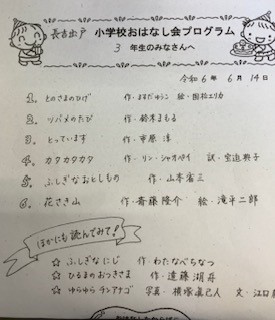 長吉出戸 小学校おはなし会プログラム
3 年生のみなさんへ
令和6年 6月14日
1. とのさまのひげ 作・ますだゆうこ 絵・国松エリカ
2. ツバメのたび 作・鈴木まもる
3. とっています 作・市原淳
4. カタカタカタ 作・リン・シャオペイ 訳・宝迫典子
5. ふしぎなおとしもの 作・山本省三
6. 花さき山 作・斎藤隆介 絵・滝平二郎
ほかにも読んでみて!
☆ ふしぎなにじ 作・わたなべちなつ
☆ ひるまのおつきさま 作・遠藤湖舟
☆ ゆらゆらチンアナゴ 写真・横塚眞己人 文・江口